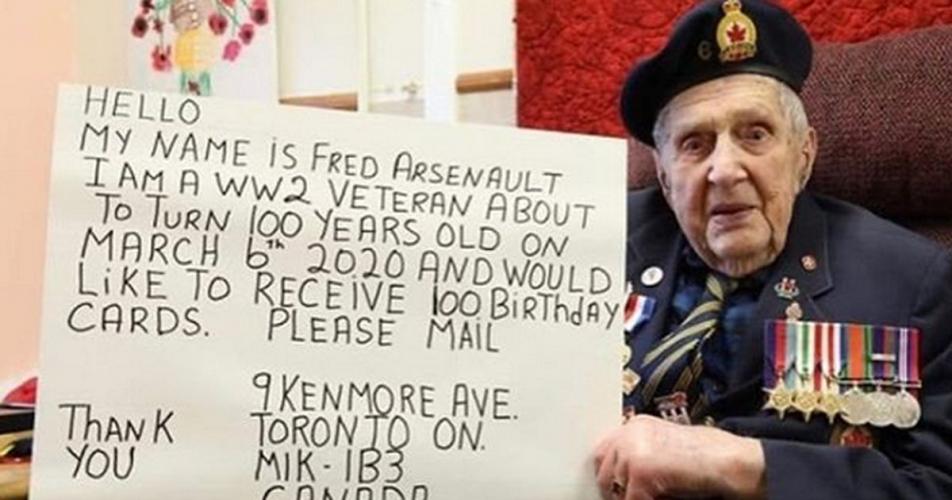 HELLO
MY NAME iS FRED ARSENAULT
I AM A WW2 VETERAN ABOUT
TO TURN 100 YEARS OLD ON
MARCH 6th 2020 AND WOULD
LiKE TO RECEIVE 100 BiRTHdAY
CARDS. PLEASE MAIL
9 KENMORE AVE.
TORONTO ON.
M1K-1B3
CANADA
THANK
YOU